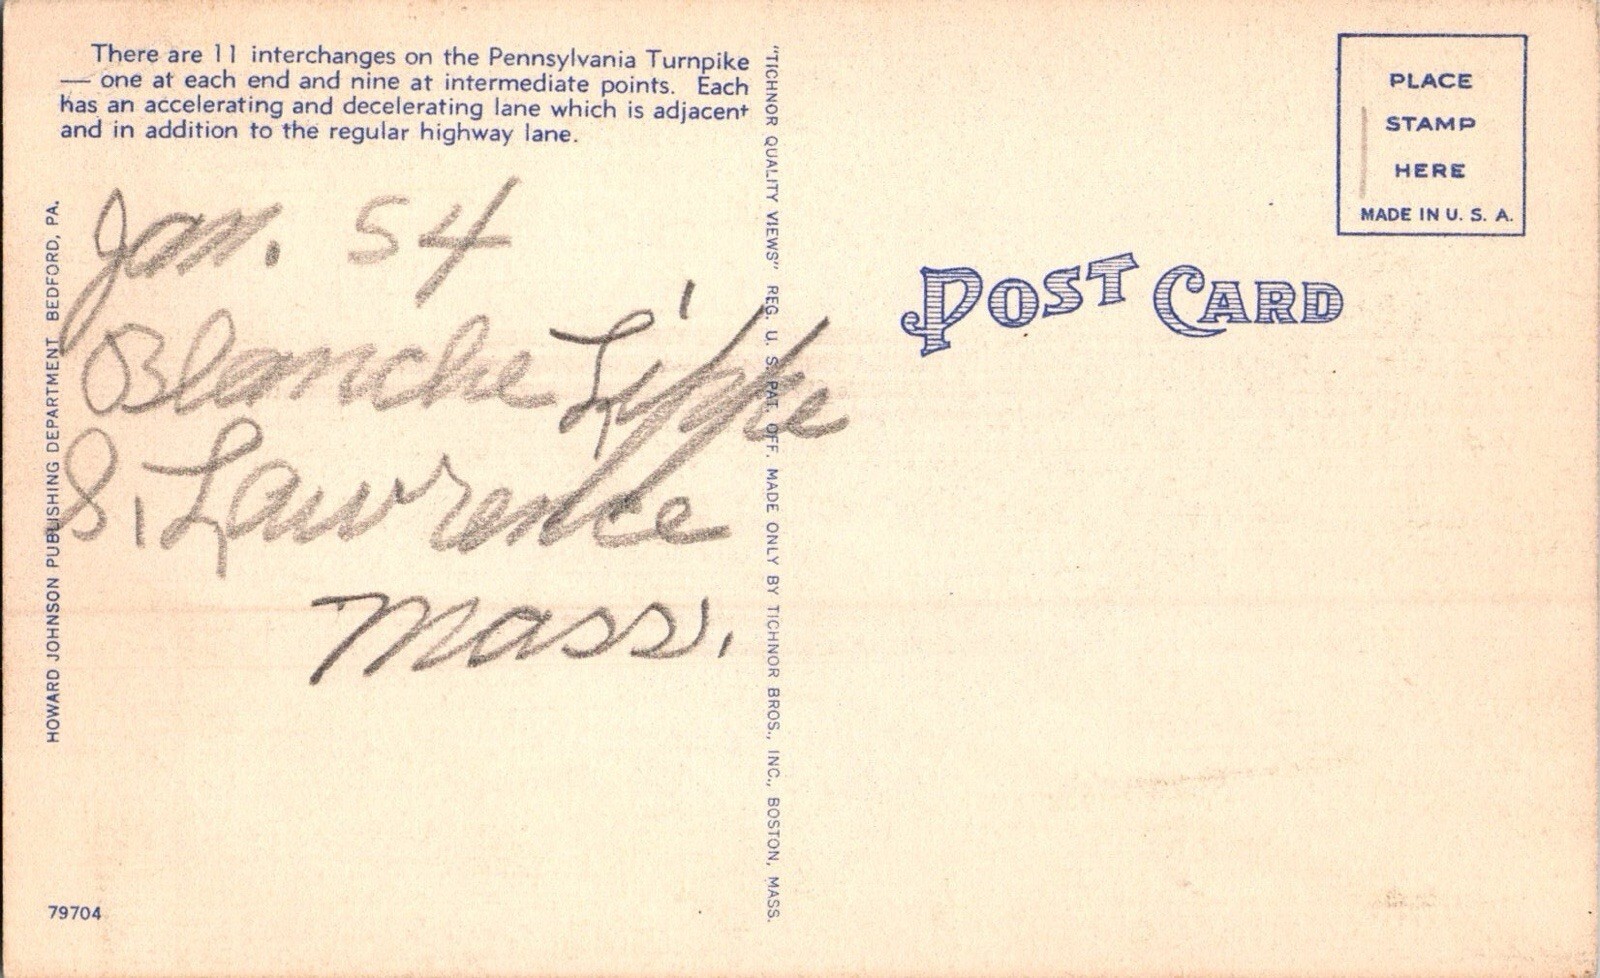 There are 11 interchanges on the Pennsylvania Turnpike
— one at each end and nine at intermediate points. Each
has an accelerating and decelerating lane which is adjacent
and in addition to the regular highway lane.
Jan. 54
Blanche Lippe
S. Lawrence
Mass.
HOWARD JOHNSON PUBLISHING DEPARTMENT, BEDFORD, PA.
79704
"TICHNOR QUALITY VIEWS" REG. U. S. PAT. OFF. MADE ONLY BY TICHNOR BROS., INC., BOSTON, MASS.
PLACE
STAMP
HERE
MADE IN U. S. A.
POST CARD